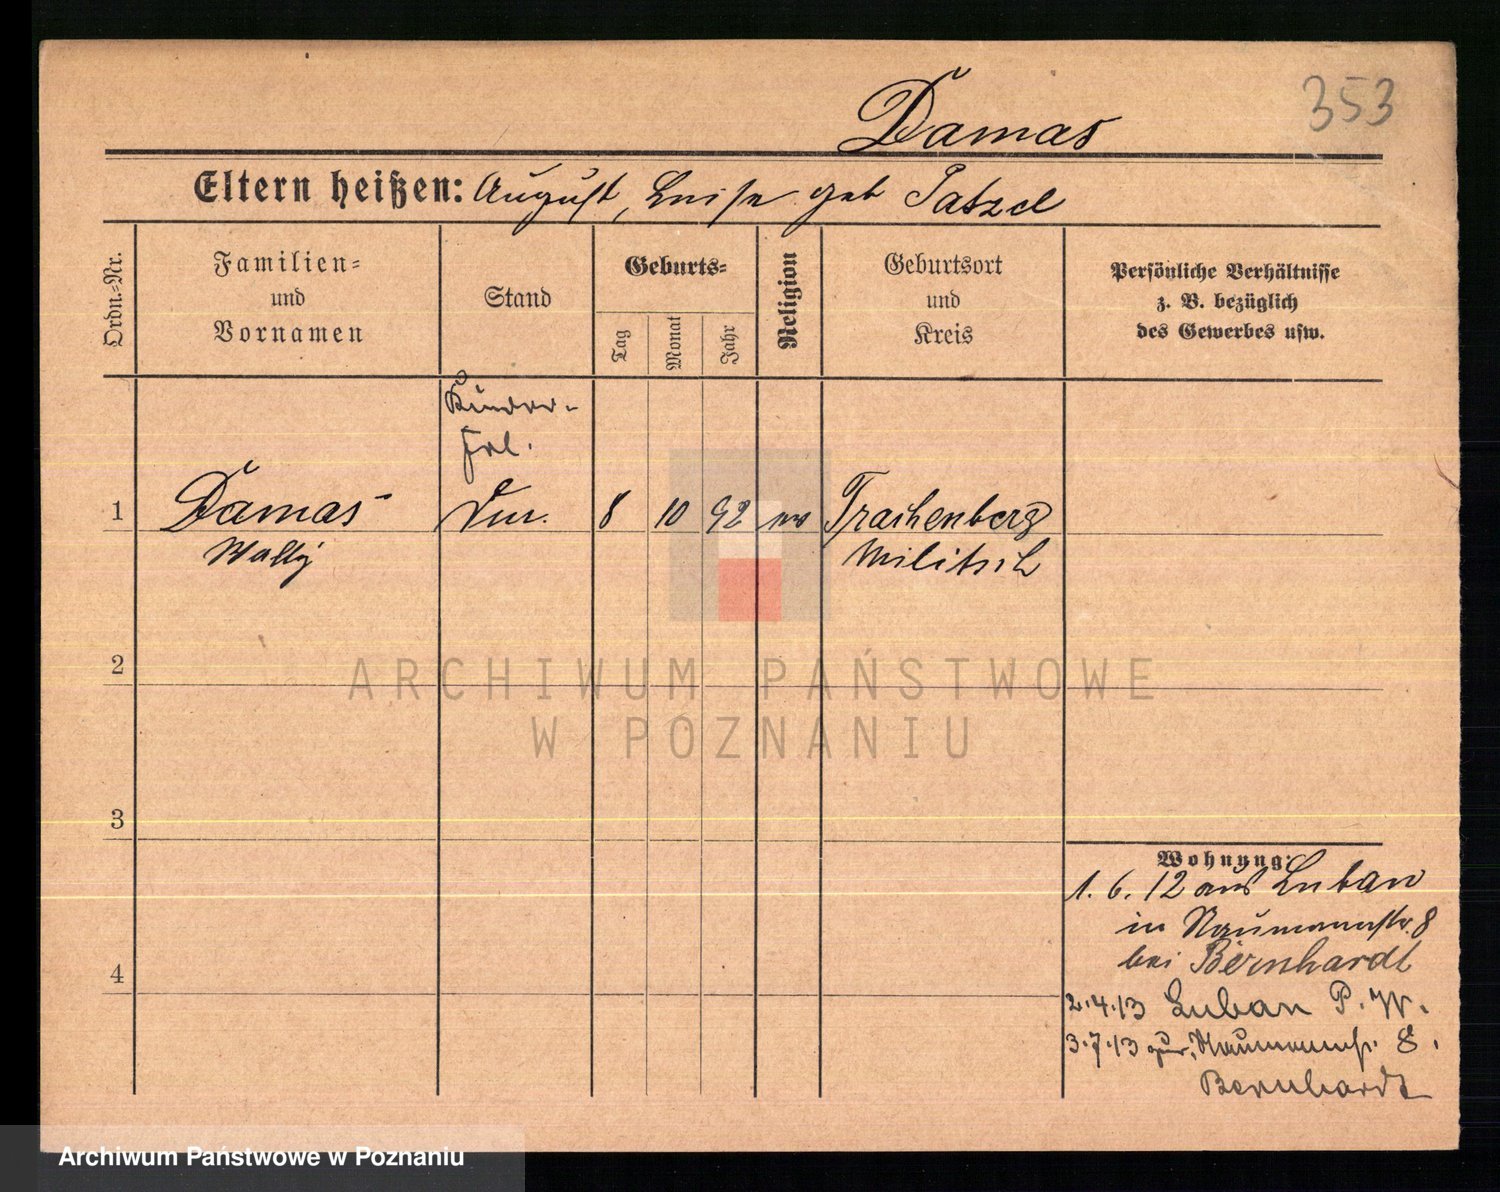 353
Damas
Eltern heißen: August, Luise geb Patzel
Ordn.-Nr.
Familien-
und
Vornamen
Stand
Geburts-
Tag
Monat
Jahr
Religion
Geburtsort
und
Kreis
Persönliche Verhältnisse
z. B. bezüglich
des Gewerbes usw.
Kinder-
frl.
1 Damas 8 10 92 ev Trachenberg
Wally Militsch
2
3
4
Wohnung:
1. 6. 12 aus Luban
in Naumannstr. 8
bei Bernhardt
2.4.13 Luban P. W.
3.7.13 zur. Naumannstr. 8.
Bernhardt
ARCHIWUM PAŃSTWOWE
W POZNANIU
Archiwum Państwowe w Poznaniu